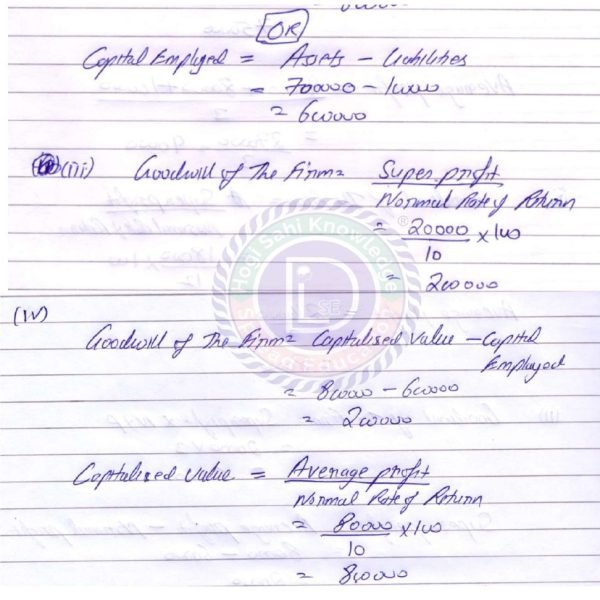 OR
Capital Employed = Assets - Liabilities
= 700000 - 100000
= 600000
(iii) Goodwill of The Firm = Super profit
Normal Rate of Return
= 20000 x 100
10
= 200000
Hogi Sahi Knowledge ®
(IV)
Goodwill of The Firm = Capitalised Value - Capital
Employed
= 800000 - 600000
= 200000
Capitalised value = Average profit
Normal Rate of Return
= 80000 x 100
10
= 800000